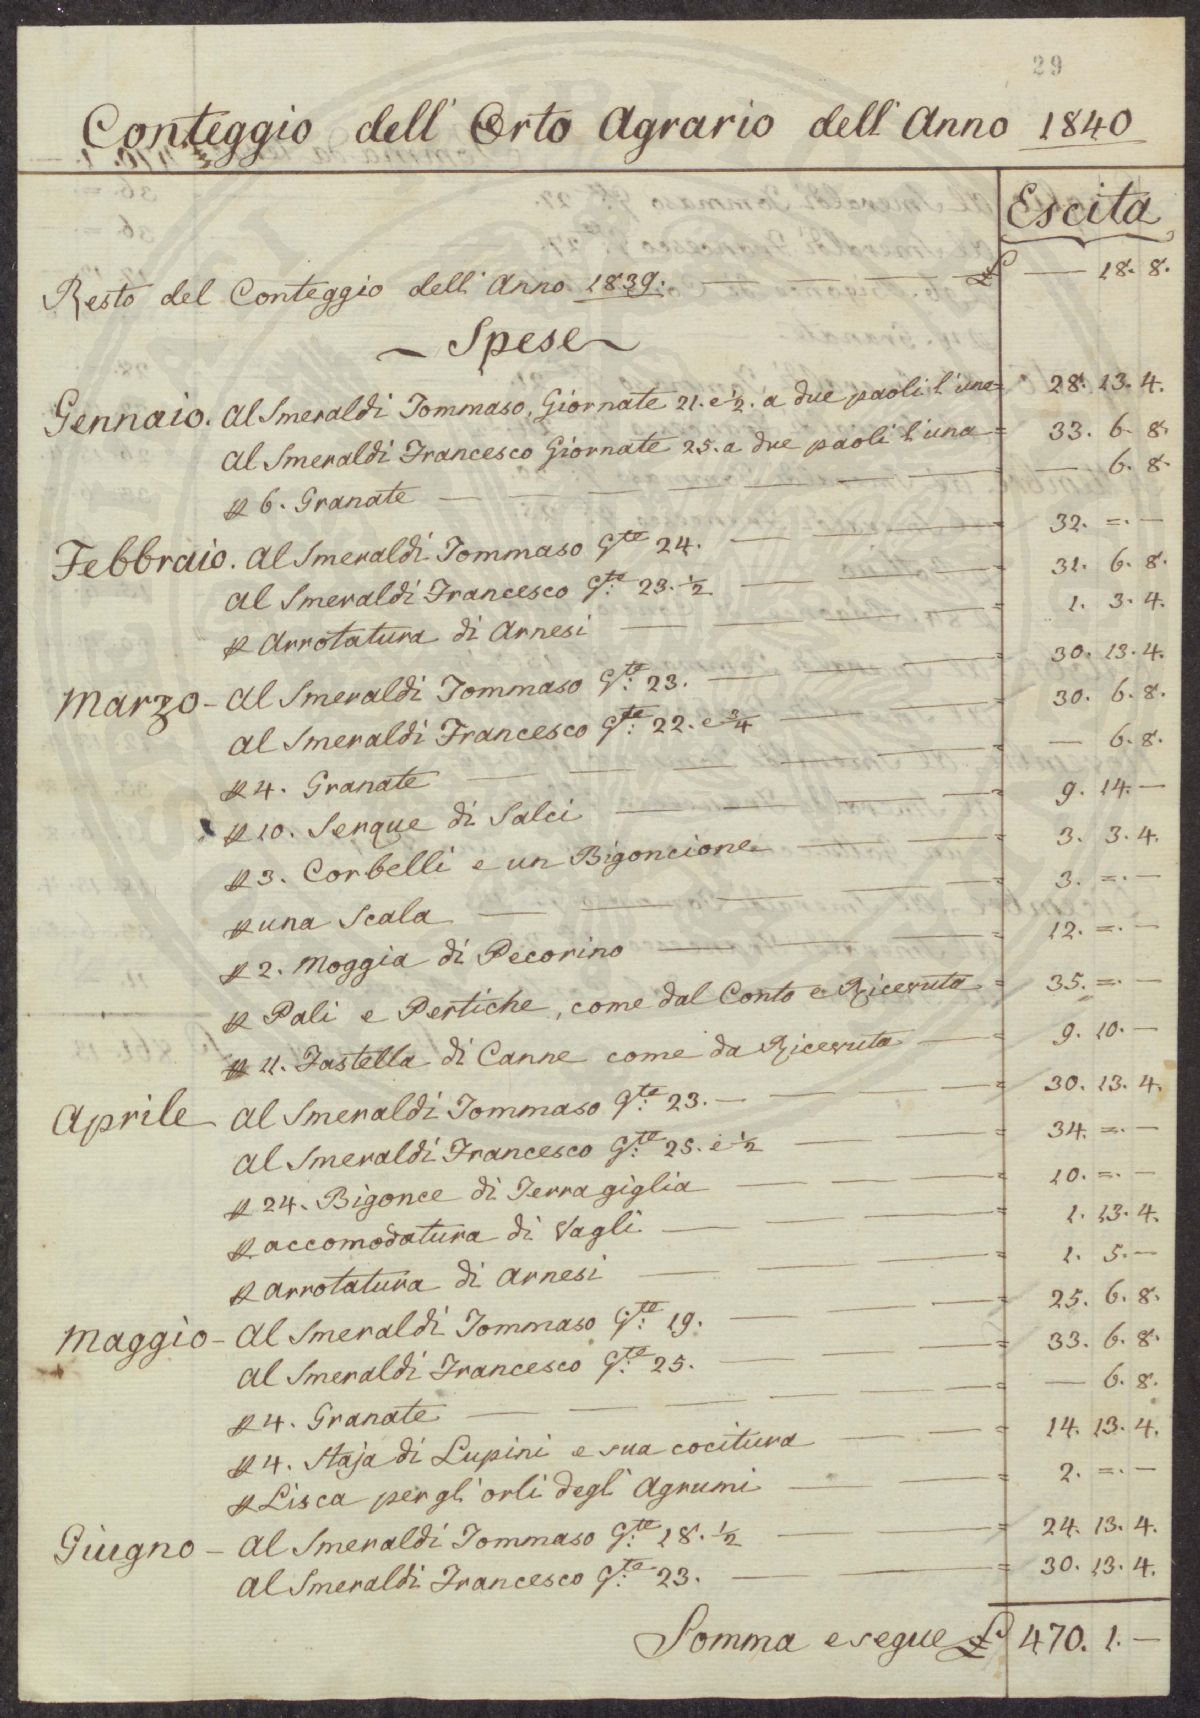 29
Conteggio dell' Orto Agrario dell' Anno 1840
Escita
Resto del Conteggio dell' Anno 1839. — — — £ — 18. 8.
~ Spese ~
Gennaio. Al Smeraldi Tommaso, Giornate 21. e ½. a due paoli l'una = 28. 13. 4.
Al Smeraldi Francesco Giornate 25. a due paoli l'una = 33. 6. 8.
p 6. Granate — — — — — — = — 6. 8.
Febbraio. Al Smeraldi Tommaso G.te 24. — — — = 32. =. —
Al Smeraldi Francesco G.te 23. ½ — — — = 31. 6. 8.
p Arrotatura di Arnesi — — — — = 1. 3. 4.
Marzo - Al Smeraldi Tommaso G.te 23. — — — = 30. 13. 4.
Al Smeraldi Francesco G.te 22. e ¾ — — — = 30. 6. 8.
p 4. Granate — — — — — = — 6. 8.
p 10. Serque di Salci — — — — = 9. 14. —
p 3. Corbelli e un Bigoncione — — = 3. 3. 4.
p una Scala — — — — — = 3. =. —
p 2. Moggia di Pecorino — — — = 12. =. —
p Pali e Pertiche, come dal Conto e Ricevuta = 35. =. —
p 11. Fastella di Canne come da Ricevuta — = 9. 10. —
Aprile Al Smeraldi Tommaso G.te 23. — — — = 30. 13. 4.
Al Smeraldi Francesco G.te 25. e ½ — — — = 34. =. —
p 24. Bigonce di Terra giglia — — — = 10. =. —
p accomodatura di Vagli — — — — = 1. 13. 4.
p arrotatura di Arnesi — — — — = 1. 5. —
Maggio - Al Smeraldi Tommaso G.te 19. — — — = 25. 6. 8.
Al Smeraldi Francesco G.te 25. — — — = 33. 6. 8.
p 4. Granate — — — — — = — 6. 8.
p 4. Staja di Lupini e sua cocitura — — = 14. 13. 4.
p Lisca per gl' orli degl' Agrumi — — = 2. =. —
Giugno - Al Smeraldi Tommaso G.te 18. ½ — — = 24. 13. 4.
Al Smeraldi Francesco G.te 23. — — = 30. 13. 4.
Somma e segue £ 470. 1. —